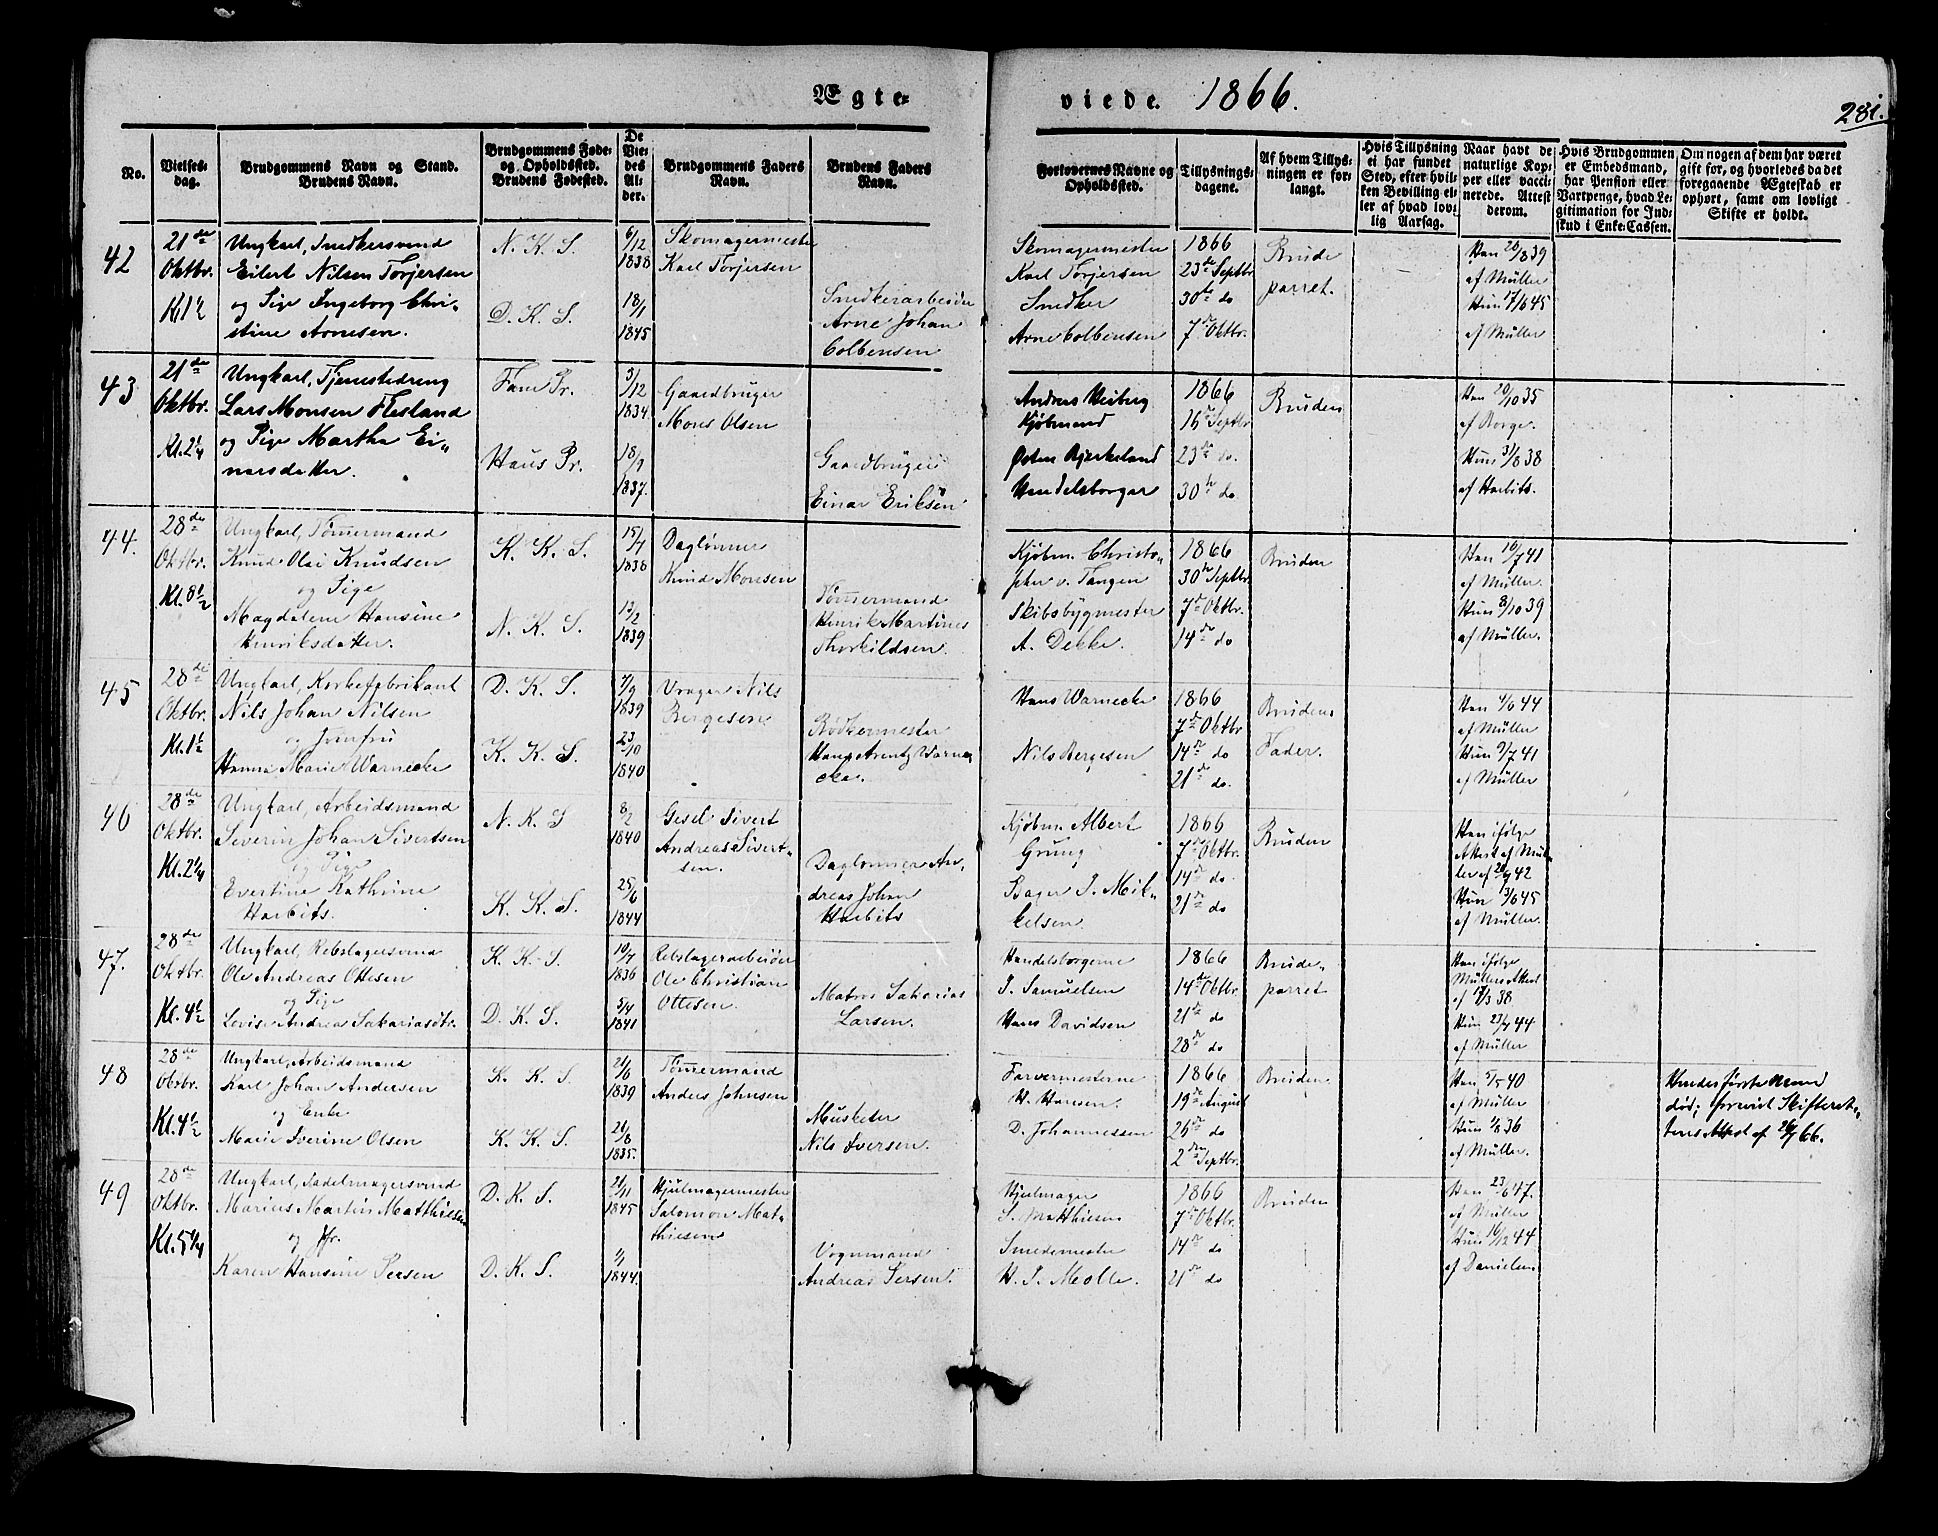 Ægte-
viede. 1866.
281.
No.
Vielses-
dag.
Brudgommens Navn og Stand.
Brudens Navn.
Brudgommens Føde-
og Opholdssted.
Brudens Fødested.
De
Vie-
des
Al-
der.
Brudgommens Faders
Navn.
Brudens Faders
Navn.
Forlovernes Navne og
Opholdssted.
Tillysnings-
dagene.
Af hvem Tillys-
ningen er for-
langt.
Hvis Tillysning
ei har fundet
Sted, efter hvil-
ken Bevilling el-
ler af hvad lov-
lig Aarsag.
Naar havt de
naturlige Kop-
per eller vacci-
nerede. Attest
derom.
Hvis Brudgommen
er Embedsmand,
har Pension eller
Vartpenge, hvad Le-
gitimation for Ind-
skud i Enke-Cassen.
Om nogen af dem har været
gift før, og hvorledes da det
foregaaende Ægteskab er
ophørt, samt om lovligt
Skifte er holdt.
42
21de
Oktbr.
Kl. 1½
Ungkarl, Snedkersvend
Eilert Nilsen Torjersen
og Pige Ingeborg Chri-
stine Arnesen.
N. K. S.
D. K. S.
6/12
1838
18/1
1845
Skomagermester
Karl Torjersen
Snedkerarbeider
Arne Johan
Colbensen
Skomagermester
Karl Torjersen
Snedker
Arne Colbensen
1866
23de Septbr.
30te do
7de Oktbr.
Brude
parret.
Han 20/8 39
af Müller
Hun 17/6 45
af Müller
43
21de
Oktbr.
Kl. 2¼
Ungkarl, Tjenestedreng
Lars Monsen Flesland
og Pige Martha Ei-
narsdatter.
Fane Pr.
Haus Pr.
3/12
1834.
18/1
1837.
Gaardbruger
Mons Olsen
Gaardbruger
Einar Eriksen
Andreas Weiberg
Kjøbmand
Østen Bjerkeland
Handelsborger
1866
16de Septbr
23de do.
30te do
Bruden
Han 20/10 35
af Borge.
Hun 3/8 38
af Harbits.
44.
28de
Oktbr.
Kl. 8½
Ungkarl, Tømmermand
Knud Olai Knudsen
og Pige
Magdalene Hansine
Henriksdatter.
K. K. S.
N. K. S.
15/4
1838
12/2
1839
Daglønner
Knud Monsen
Tømmermand
Henrik Martinus
Thorkildsen.
Kjøbm. Christo-
pher v. Tangen
Skibsbygmester
A. Dekke.
1866
30te Septbr.
7de Oktbr.
14de do
Bruden
Han 16/7 41
af Müller.
Hun 8/10 39
af Müller.
45
28de
Oktbr.
Kl. 1½
Ungkarl, Korkefabrikant
Nils Johan Nilsen
og Jomfru
Hanna Marie Warnecke
D. K. S.
K. K. S
7/9
1839
23/10
1840
Vrager Nils
Bergesen
Bødkermester
Hans Arentz Warne-
cke.
Hans Warnecke
Nils Bergesen
1866
7de Oktbr
14de do
21de do.
Brudens
Fader.
Han 4/6 44
af Müller
Hun 9/7 41
af Müller
46
28de
Oktbr.
Kl. 2¼
Ungkarl, Arbeidsmand
Severin Johan Sivertsen
og Pige
Evertine Kathrine
Harbits.
N. K. S
K. K. S.
8/2
1840
25/6
1844
Gesel Sivert
Andreas Sivert-
sen.
Daglønner An-
dreas Johan
Harbits
Kjøbm. Albert
Grung
Bager J. Mik-
kelsen
1866
7de Oktbr.
14de do.
21de do
Bruden
Han ifølge
Attest af Mül-
ler af 20/9 42
Hun 3/6 45
af Müller.
47.
28de
Oktbr.
Kl. 4½
Ungkarl, Rebslagersvend
Ole Andreas Ottesen
og Pige
Lovise Andrea Sakariasdtr.
K. K. S.
D. K. S.
10/7
1836
5/4
1841
Rebslagerarbeider
Ole Christian
Ottesen.
Matros Sakarias
Larsen.
Handelsborgerne
J. Samuelsen
Hans Davidsen
1866
14de Oktbr.
21de do
28de do
Brude-
parret
Han ifølge
Müllers Attest
af 17/3 38
Hun 23/7 44
af Müller
48
28de
Oktbr.
Kl. 4½
Ungkarl, Arbeidsmand
Karl Johan Andersen
og Enke
Marie Iverine Olsen
K. K. S.
K. K. S.
21/6
1839
21/8
1835.
Tømmermand
Anders Johnsen
Musketer
Nils Iversen.
Farvermesterne
H. Hansen.
D. Johannessen
1866
19de August
26de do
2den Septbr.
Bruden.
Han 5/5 40
af Müller
Hun 1/8 36
af Müller.
Hendes første Mand
død; forevist Skifteret-
tens Attest af 26/7 66.
49
28de
Oktbr.
Kl. 5¼
Ungkarl, Sadelmagersvend
Marius Martin Matthiesen
og Jfr.
Karen Hansine Sersen
D. K. S.
D. K. S.
21/11
1845
1/1
1844.
Hjulmagermester
Salomon Mat-
thiesen
Vognmand
Andreas Sersen.
Hjulmager
S. Matthiesen
Smedemester
H. J. Molle.
1866
7de Oktbr.
14de do
21de do
Bruden
Han 23/6 47.
af Müller
Hun 16/12 44
af Danielsen